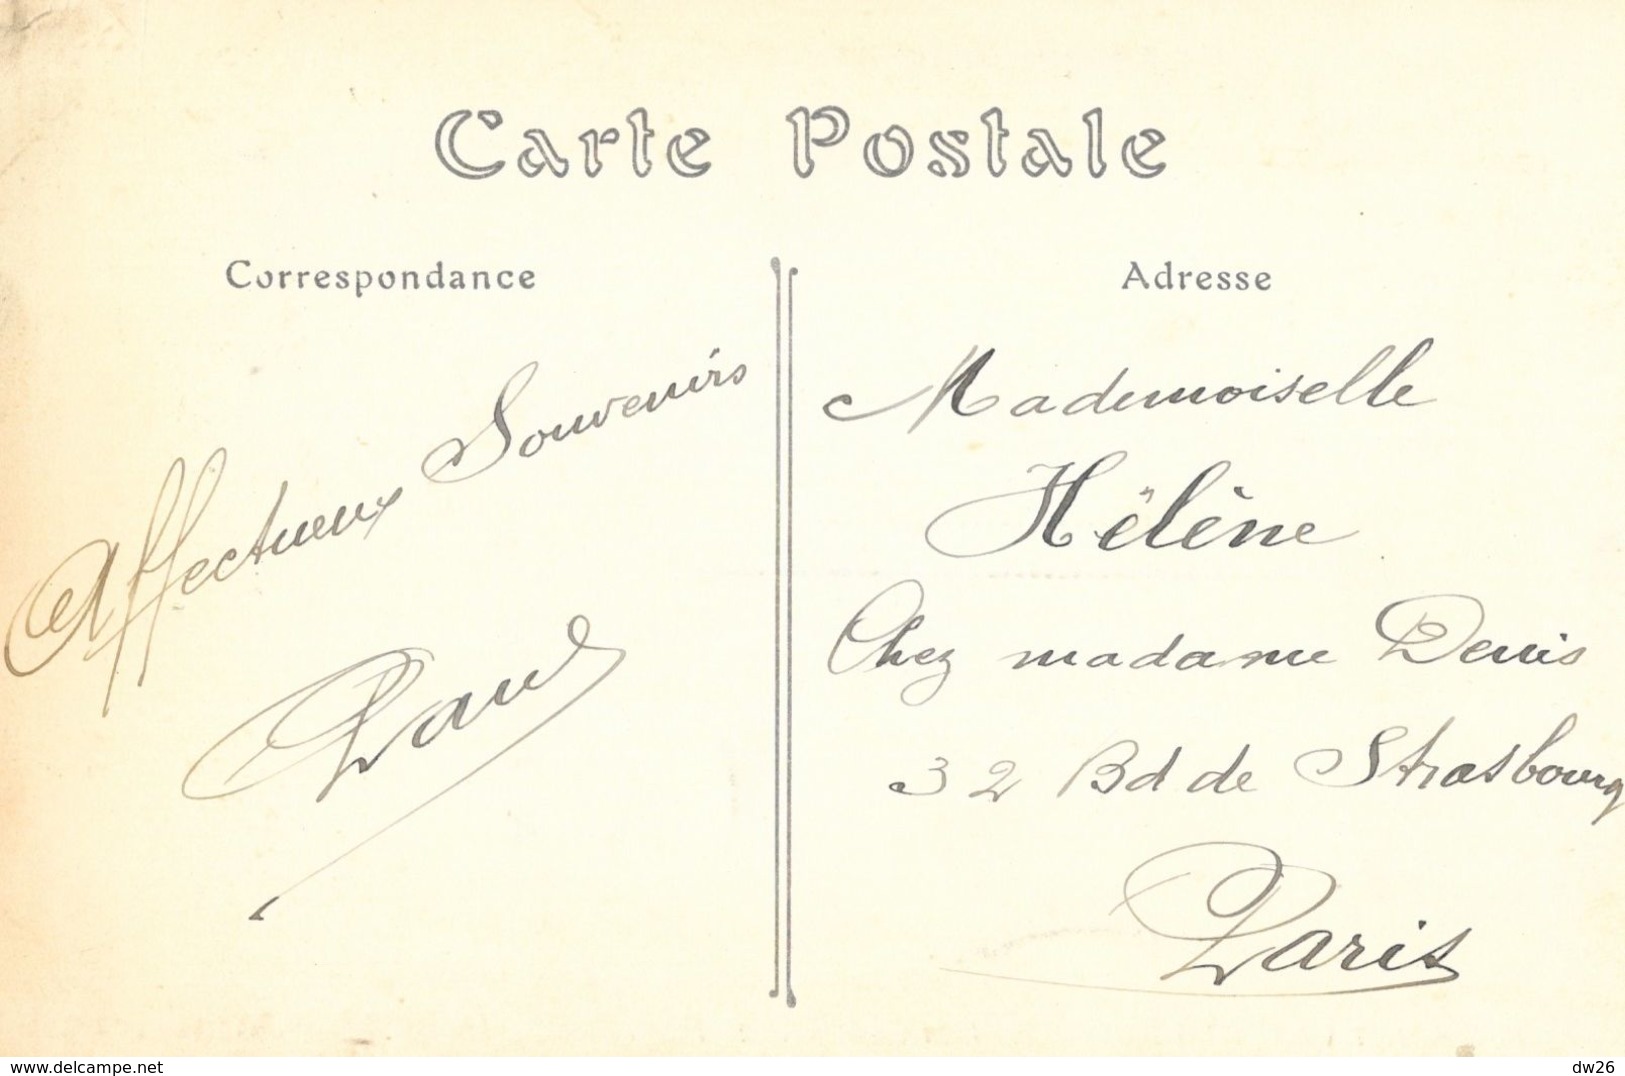 Carte Postale
Correspondance
Affectueux Souvenirs
Paul
Adresse
Mademoiselle
Hélène
Chez madame Denis
32 Bd de Strasbourg
Paris
www.delcampe.net
dw26